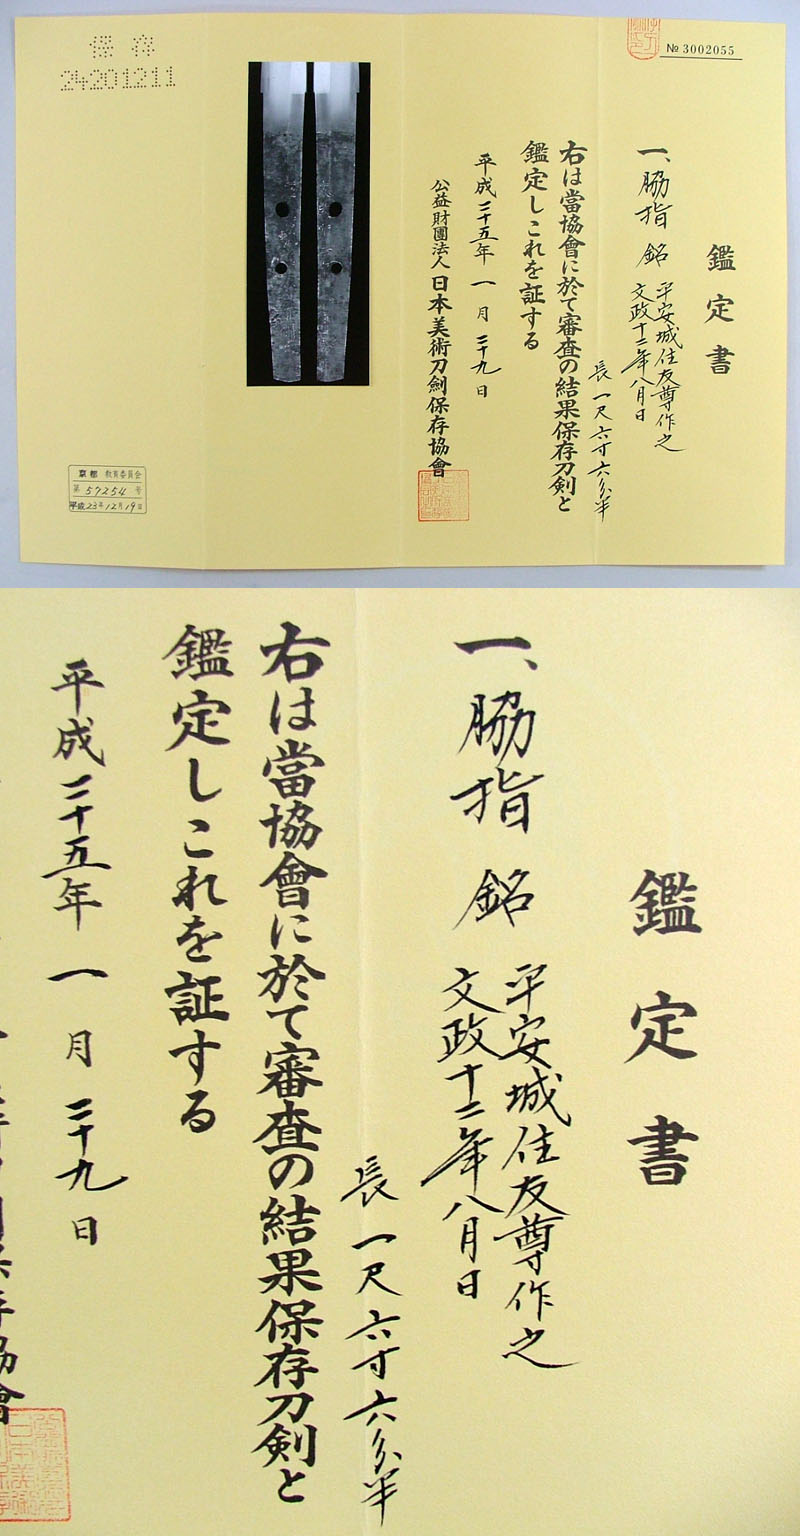 № 3002055
鑑定書
一、脇指 銘 平安城住友尊作之
文政十二年八月日
長一尺六寸六分半
右は當協會に於て審査の結果保存刀剣と
鑑定しこれを証する
平成二十五年一月二十九日
公益財團法人日本美術刀劍保存協會
保存
24201211
京都 教育委員会
第 57254 号
平成23年12月19日
鑑定書
一、脇指 銘 平安城住友尊作之
文政十二年八月日
長一尺六寸六分半
右は當協會に於て審査の結果保存刀剣と
鑑定しこれを証する
平成二十五年一月二十九日